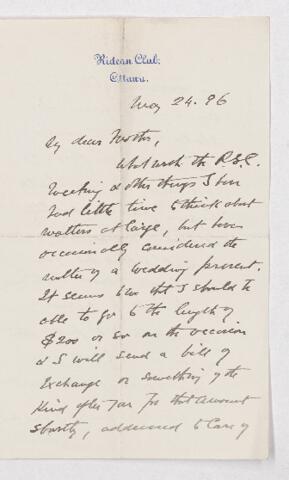 Rideau Club,
Ottawa.
May 24. 96
My dear Mother,
What with the R.S.C.
Meeting & other things I have
had little time to think about
matters at large, but have
occasionally considered the
matter of a wedding present.
It seems to me that I should be
able to go to the length of
$200 or so on the occasion
& I will send a bill of
Exchange or something of the
Kind after Jan for that amount
shortly, addressed to Care of